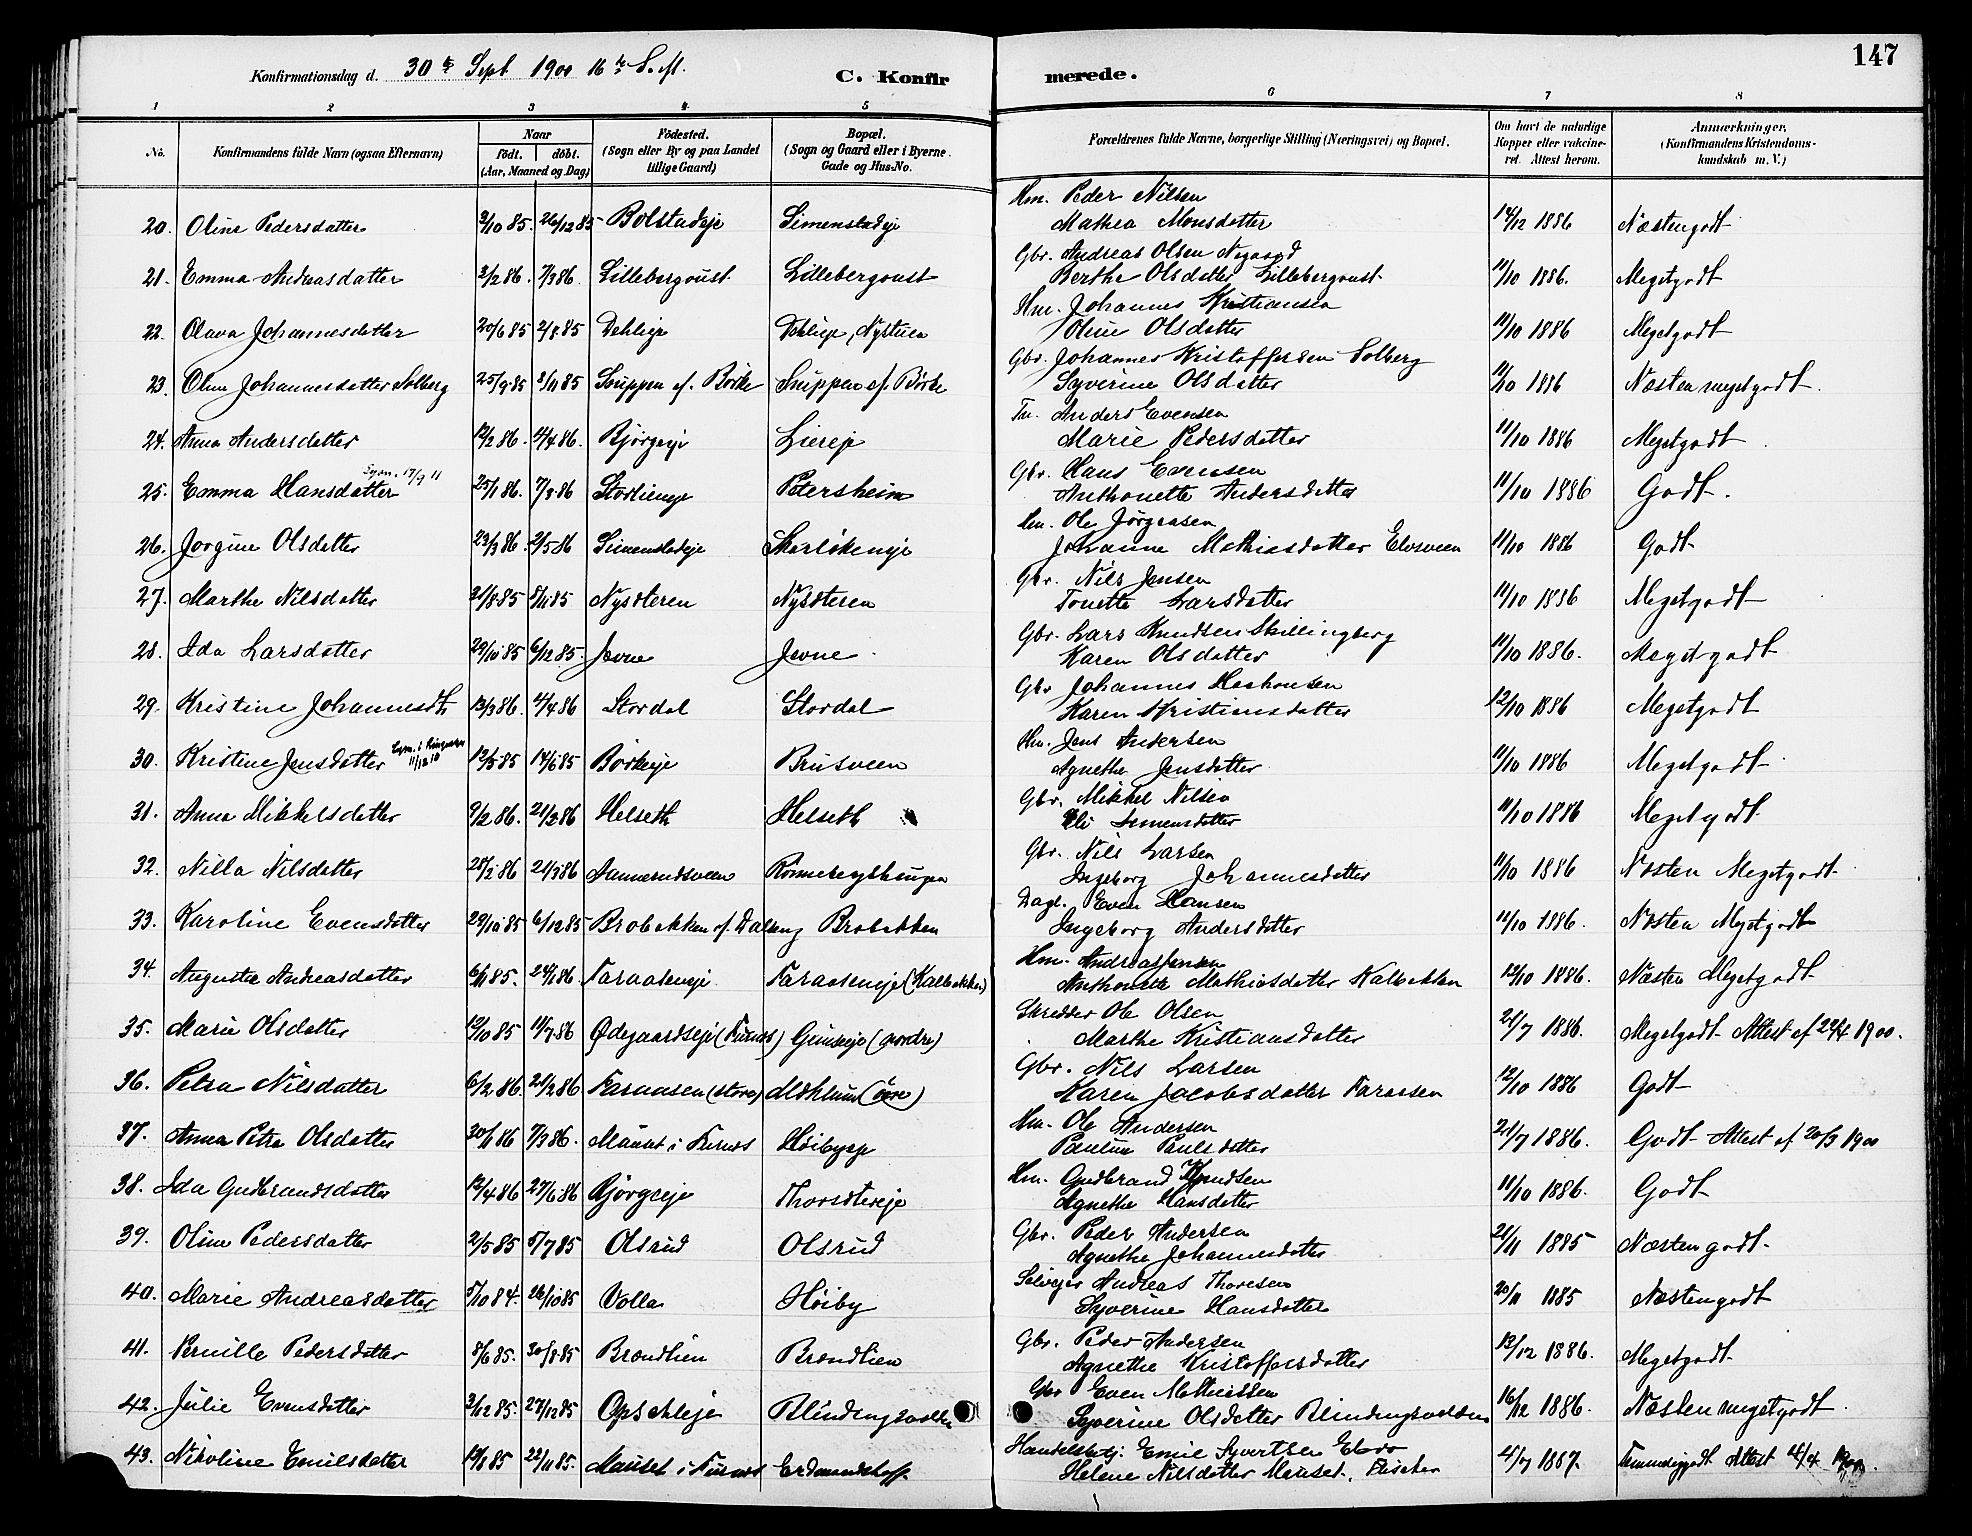 147
Konfirmationsdag d. 30te Sept 1900 16de S. e. Tr.
C. Konfirmerede.
1 2 3 4 5 6 7 8
No. Konfirmandens fulde Navn (ogsaa Efternavn) Naar Födt. döbt. (Aar, Maaned og Dag) Födested. (Sogn eller By og paa Landet tillige Gaard) Bopæl. (Sogn og Gaard eller i Byerne Gade og Hus-No. Forældrenes fulde Navne, borgerlige Stilling (Næringsvei) og Bopæl. Om havt de naturlige Kopper eller vakcineret. Attest herom. Anmærkninger. (Konfirmandens Kristendomskundskab m. V.)
Hm. Peder Nilsen
20. Oline Pedersdatter 3/10 85. 26/12 85 Bolstadeje Simenstadeje Mathea Monsdatter 14/12 1886 Næstengodt
Gbr. Andreas Olsen Nygaard
21. Emma Andreasdatter 3/2 86. 7/3 86. Lillebergoust Lillebergoust Berthe Olsdatter Lillebergoust 11/10 1886. Megetgodt
Hm. Johannes Kristiansen
22. Olava Johannesdatter 20/6 85 2/8 85 Dehlieje Dehlieje, Nystuen Oline Olsdatter 11/10 1886 Megetgodt
Gbr. Johannes Kristoffersen Solberg
23. Oline Johannesdatter Solberg 25/9 85 1/11 85 Snippen af Börke Snippen af Börke Syverine Olsdatter 12/10 1886 Næsten megetgodt.
Anders Evensen
24. Anna Andersdatter 12/2 86. 11/4 86. Bjørgeje Liereje Marie Pedersdatter 11/10 1886 Megetgodt
17/9 11 Gbr. Hans Evensen
25. Emma Hansdatter 25/1 86. 7/3 86 Storliengje Petersheim Anthonette Andersdatter 11/10 1886 Godt.
Hm. Ole Jørgensen
26. Jorgine Olsdatter 23/3 86. 2/5 86 Simenstadeje Skarlökeneje Johanne Mathiasdatter Elvsveen 11/10 1886 Godt
Gbr. Nils Jensen
27. Marthe Nilsdatter 21/8 85 8/11 85 Nysæteren Nysæteren Tonette Larsdatter 11/10 1886 Megetgodt
Gbr. Lars Knudsen Skillingberg
28. Ida Larsdatter 29/10 85 6/12 85. Jevne Jevne Karen Olsdatter 11/10 1886. Megetgodt
Gbr. Johannes
29. Kristine Johannesdt 13/3 86. 11/4 86 Stordal Stordal Karen Kristiansdatter 12/10 1886 Megetgodt
i Ringsaker 11/12 10 Hm. Jens Andersen
30. Kristine Jensdatter 12/5 85 14/6 85 Börkeje Brusveen Agnethe Jensdatter 11/10 1886 Megetgodt
Gbr. Mikkel Nilsen
31. Anna Mikkelsdatter 9/2 86. 21/3 86 Helseth Helseth Eli Simensdatter 11/10 1886 Megetgodt
Gbr. Nils Larsen
32. Nilla Nilsdatter 28/1 86 21/3 86 Aannerudsveen Rönnebergshaugen Ingeborg Johannesdatter 11/10 1886 Næsten Megetgodt
Dagl. Even Hansen
33. Karoline Evensdatter 29/10 85 6/12 85 Brobakken af Dalseng Brobakken Ingeborg Andersdatter 11/10 1886. Næsten Megetgodt
Hm. Andreas Jensen
34. Augusta Andreasdatter 6/11 85. 24/1 86. Faraaseneje Faraaseneje (Kalbakken) Anthonette Mathiasdatter Kalbakken 12/10 1886. Næsten Megetgodt
Skredder Ole Olsen
35. Marie Olsdatter 12/10 85 11/7 86 Ødegaardseje (Furnes) Gunseje (nordre) Marthe Kristiansdatter 21/7 1886. Megetgodt Attest af 22/4 1900.
Gbr. Nils Larsen
36. Petra Nilsdatter 6/2 86. 21/2 86 Faraasen (store) Mæhlum (övre) Karen Jacobsdatter Faraasen 12/10 1886 Godt
Hm. Ole Andersen
37. Anna Petra Olsdatter 30/1 86 7/3 86. Mauset i Furnes Höibyeje Pauline Paulsdatter 21/7 1886. Godt Attest af 20/3 1900
Hm. Gudbrand Knudsen
38. Ida Gudbrandsdatter 12/4 86 27/6 86 Bjørgeje Thorsætereje Agnethe Hansdatter 11/10 1886. Godt
Gbr. Peder Andersen
39. Oline Pedersdatter 2/5 85 5/7 85 Olsrud Olsrud Agnethe Johannesdatter 21/11 1885 Næstengodt
Selvejer Andreas Thoresen
40. Marie Andreasdatter 5/10 84. 26/10 85 Volla Höiby Syverine Hansdatter 20/11 1885 Næstengodt
Gbr. Peder Andersen
41. Pernille Pedersdatter 8/6 85. 30/8 85 Brændlien Brændlien Agnethe Kristoffersdatter 13/12 1886. Megetgodt
Gbr Even Mathiessen
42. Julie Evensdatter 3/12 85. 27/12 85 Opsahleje Blindingsvolden Syverine Olsdatter Blindingsvolden 16/12 1886. Næsten megetgodt
Handelsbetj. Emil Syvertsen
43. Nikoline Emilsdatter 22/11 85. Mauset i Furnes Erdmundshoff Helene Nilsdatter Mauset, 4/7 1887. Temmeliggodt Attest 4/4 1900.